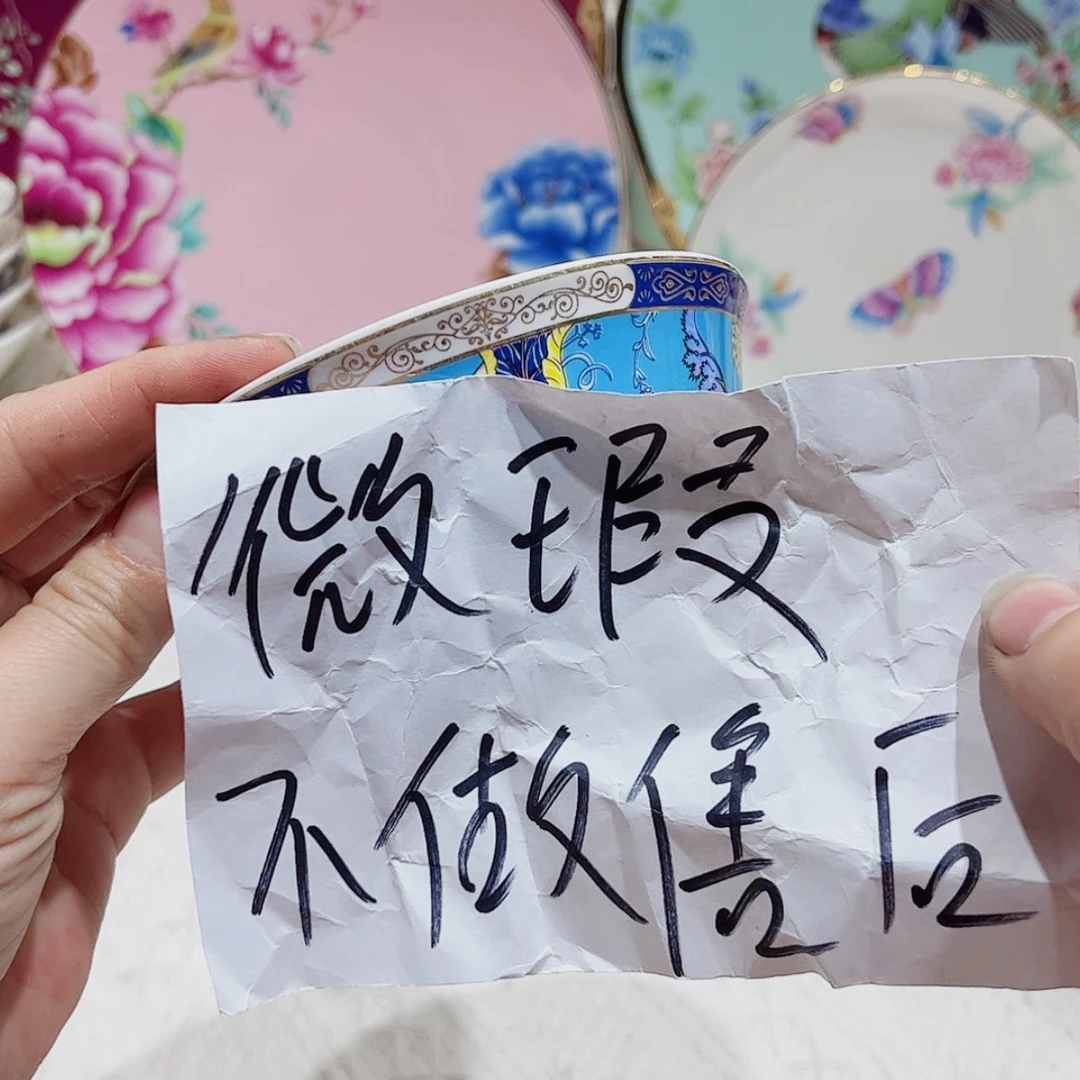 微瑕
不做售后